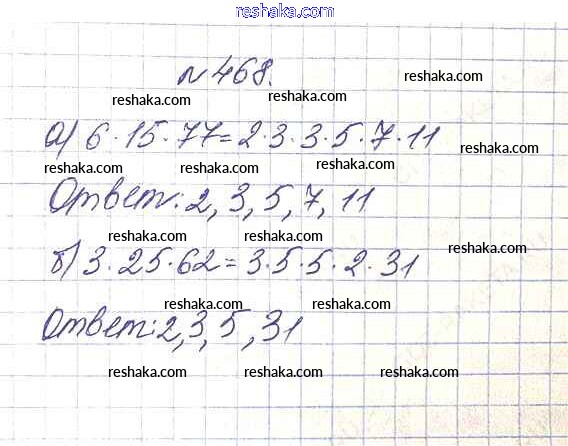 reshaka.com
№ 468.
reshaka.com
reshaka.com reshaka.com
а) 6·15·77=2·3·3·5·7·11
reshaka.com reshaka.com reshaka.com
Ответ: 2, 3, 5, 7, 11
reshaka.com reshaka.com
reshaka.com
б) 3·25·62=3·5·5·2·31
reshaka.com reshaka.com
Ответ: 2, 3, 5, 31
reshaka.com reshaka.com reshaka.com